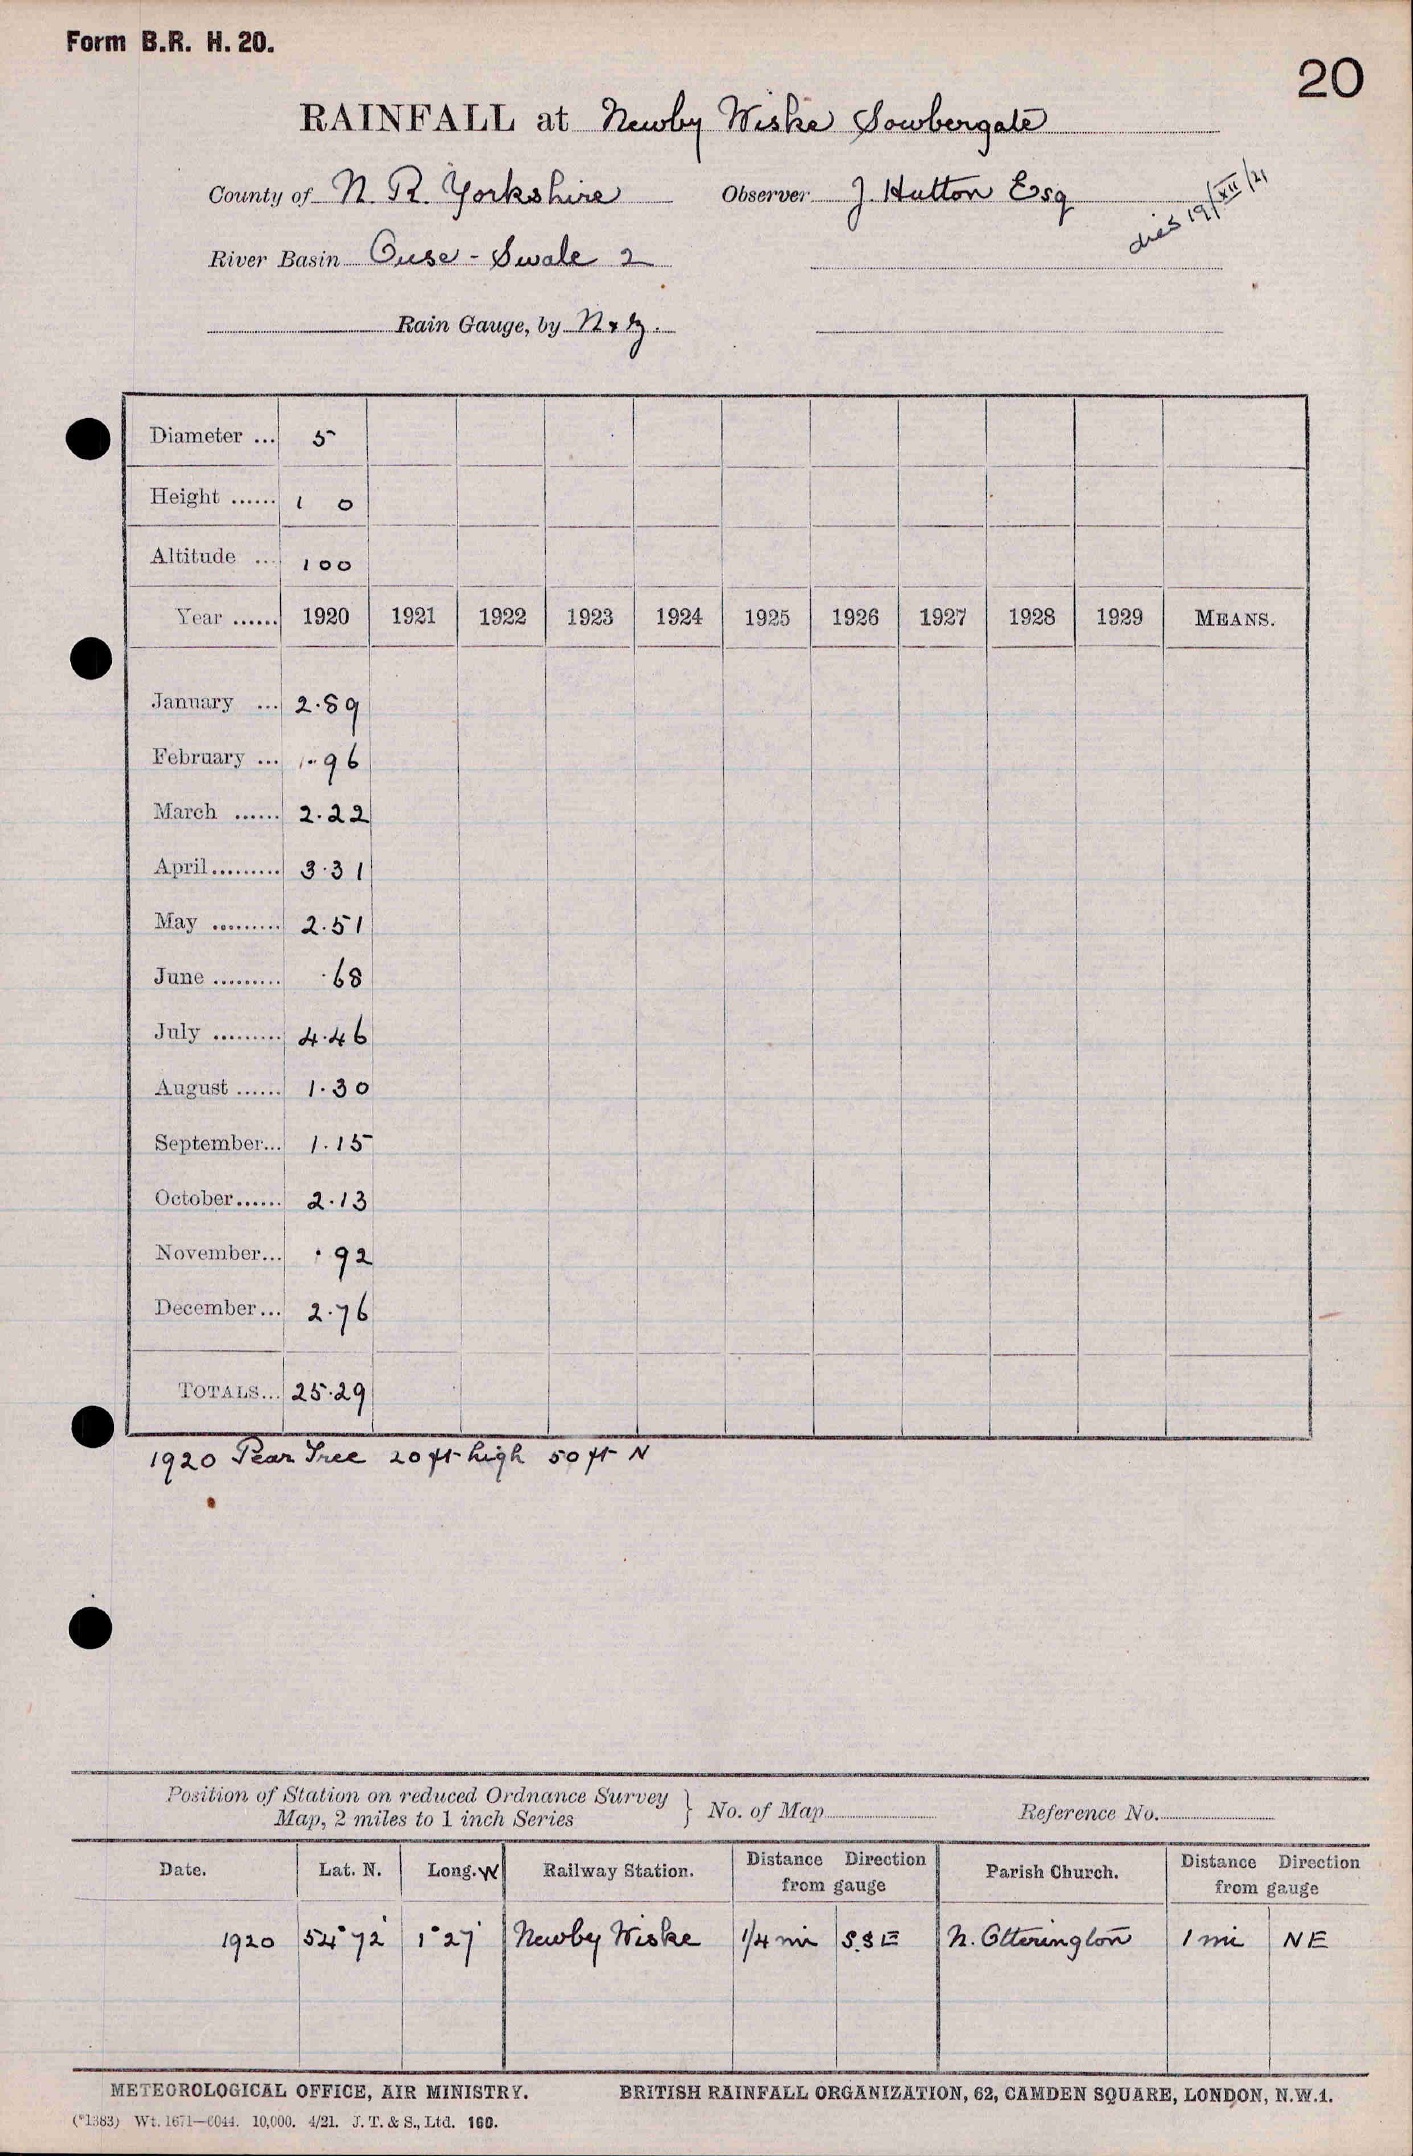 Form B.R. H. 20.
20
RAINFALL at Newby Wiske Sowbergate
County of N. R. Yorkshire Observer J. Hutton Esq
died 19/XII/21
River Basin Ouse - Swale 2
Rain Gauge, by N & Z.
Diameter ... 5
Height ...... 1 0
Altitude ... 100
Year ...... 1920 1921 1922 1923 1924 1925 1926 1927 1928 1929 MEANS.
January ... 2.89
February ... .96
March ...... 2.22
April ......... 3.31
May ......... 2.51
June ......... .68
July ......... 4.46
August ...... 1.30
September... 1.15
October...... 2.13
November... .92
December... 2.76
TOTALS... 25.29
1920 Pear Tree 20 ft high 50 ft N
Position of Station on reduced Ordnance Survey
Map, 2 miles to 1 inch Series } No. of Map Reference No.
Date. Lat. N. Long. W Railway Station. Distance Direction from gauge Parish Church. Distance Direction from gauge
1920 54°72' 1°27' Newby Wiske 1/4 mi S.S E N. Otterington 1 mi NE
METEOROLOGICAL OFFICE, AIR MINISTRY. BRITISH RAINFALL ORGANIZATION, 62, CAMDEN SQUARE, LONDON, N.W.1.
(*1383) Wt. 1671—6044. 10,000. 4/21. J. T. & S., Ltd. 160.